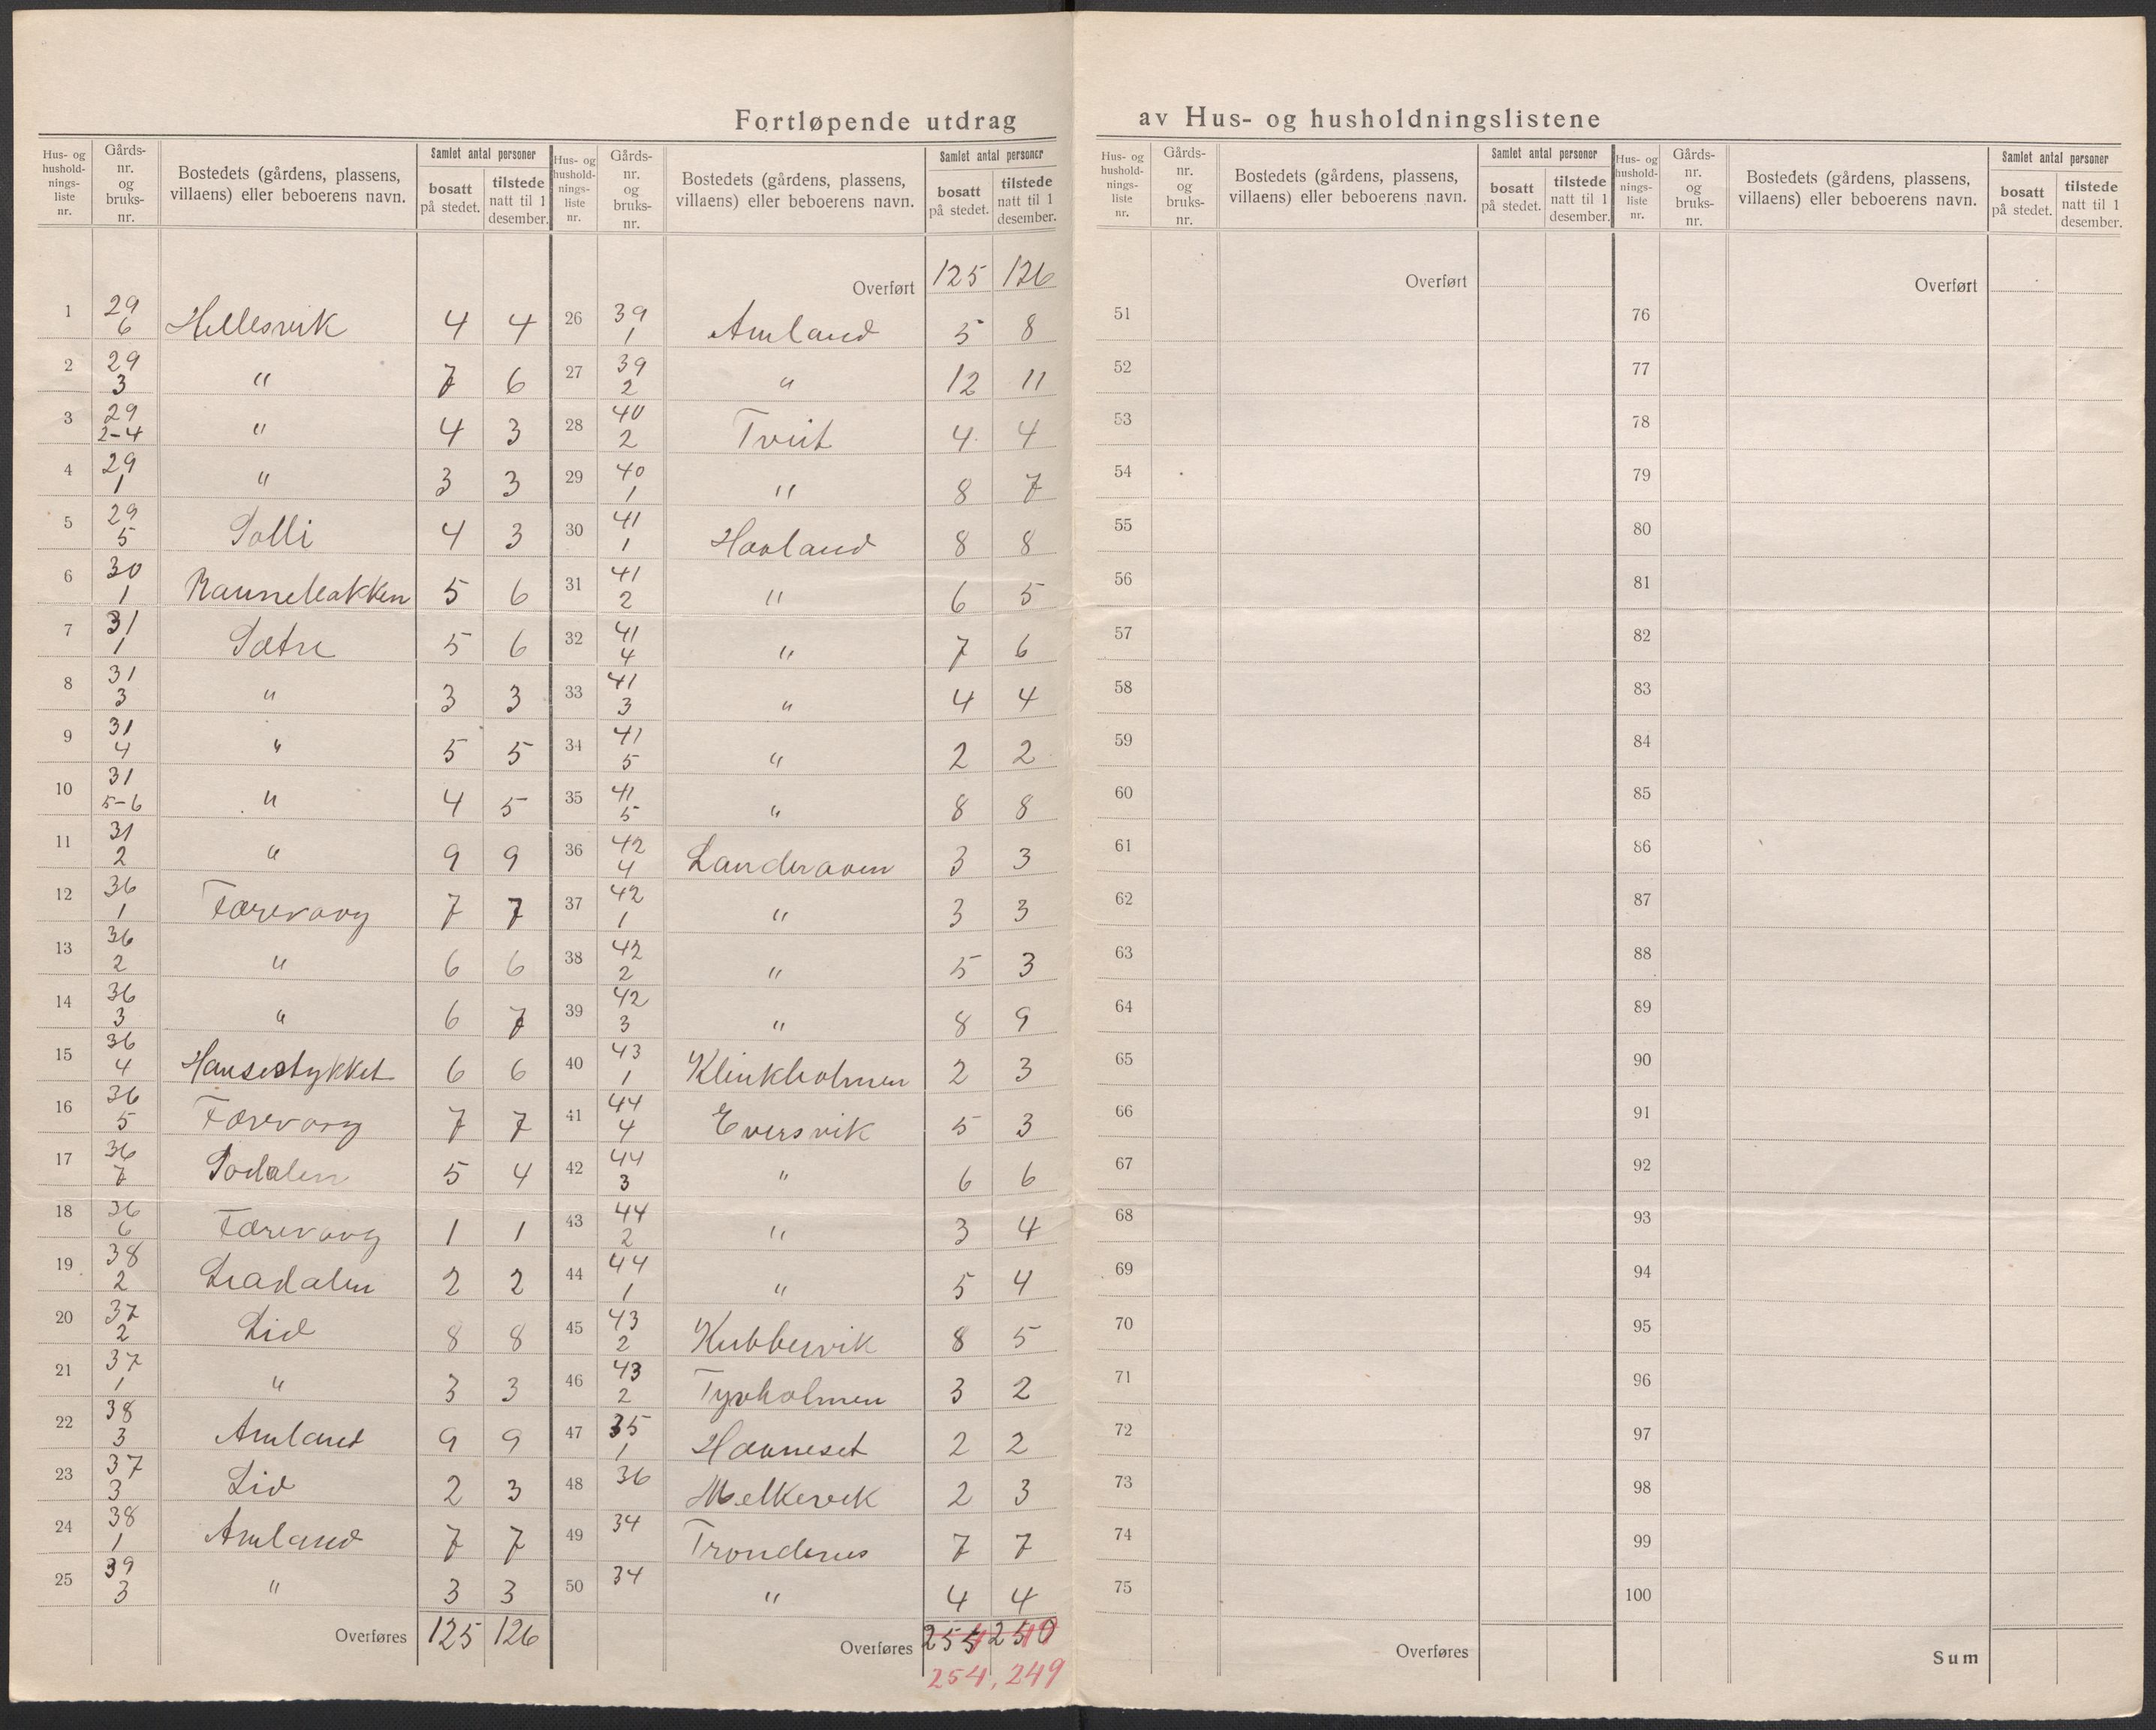 Fortløpende utdrag av Hus- og husholdningslistene
Hus- og hushold- nings- liste nr. Gårds- nr. og bruks- nr. Bostedets (gårdens, plassens, villaens) eller beboerens navn. Samlet antal personer bosatt på stedet. tilstede natt til 1 desember.
1 29 6 Hellesvik 4 4
2 29 3 " 7 6
3 29 2-4 " 4 3
4 29 1 " 3 3
5 29 5 Solli 4 3
6 30 1 Ravnebakken 5 6
7 31 1 Sætre 5 6
8 31 3 " 3 3
9 31 4 " 5 5
10 31 5-6 " 4 5
11 31 2 " 9 9
12 36 1 Færevaag 7 7
13 36 2 " 6 6
14 36 3 " 6 7
15 36 4 Hansestykket 6 6
16 36 5 Færevaag 7 7
17 36 7 Sodalen 5 4
18 36 6 Færevaag 1 1
19 38 2 Liadalen 2 2
20 37 2 Lid 8 8
21 37 1 " 3 3
22 38 3 Amland 9 9
23 37 3 Lid 2 3
24 38 1 Amland 7 7
25 39 3 " 3 3
Overføres 125 126
Hus- og hushold- nings- liste nr. Gårds- nr. og bruks- nr. Bostedets (gårdens, plassens, villaens) eller beboerens navn. Samlet antal personer bosatt på stedet. tilstede natt til 1 desember.
Overført 125 126
26 39 1 Amland 5 8
27 39 2 " 12 11
28 40 2 Tveit 4 4
29 40 1 " 8 7
30 41 1 Haaland 8 8
31 41 2 " 6 5
32 41 4 " 7 6
33 41 3 " 4 4
34 41 5 " 2 2
35 41 5 " 8 8
36 42 4 Landeraaen 3 3
37 42 1 " 3 3
38 42 2 " 5 3
39 42 3 " 8 9
40 43 1 Klinkholmen 2 3
41 44 4 Eversvik 5 3
42 44 3 " 6 6
43 44 2 " 3 4
44 44 1 " 5 4
45 43 2 Kubbervik 8 5
46 43 2 Tyvholmen 3 2
47 35 1 Havneset 2 2
48 36 Melkevik 2 3
49 34 Trondenes 7 7
50 34 " 4 4
Overføres 255 250
254, 249
Hus- og hushold- nings- liste nr. Gårds- nr. og bruks- nr. Bostedets (gårdens, plassens, villaens) eller beboerens navn. Samlet antal personer bosatt på stedet. tilstede natt til 1 desember.
Overført
51
52
53
54
55
56
57
58
59
60
61
62
63
64
65
66
67
68
69
70
71
72
73
74
75
Overføres
Hus- og hushold- nings- liste nr. Gårds- nr. og bruks- nr. Bostedets (gårdens, plassens, villaens) eller beboerens navn. Samlet antal personer bosatt på stedet. tilstede natt til 1 desember.
Overført
76
77
78
79
80
81
82
83
84
85
86
87
88
89
90
91
92
93
94
95
96
97
98
99
100
Sum